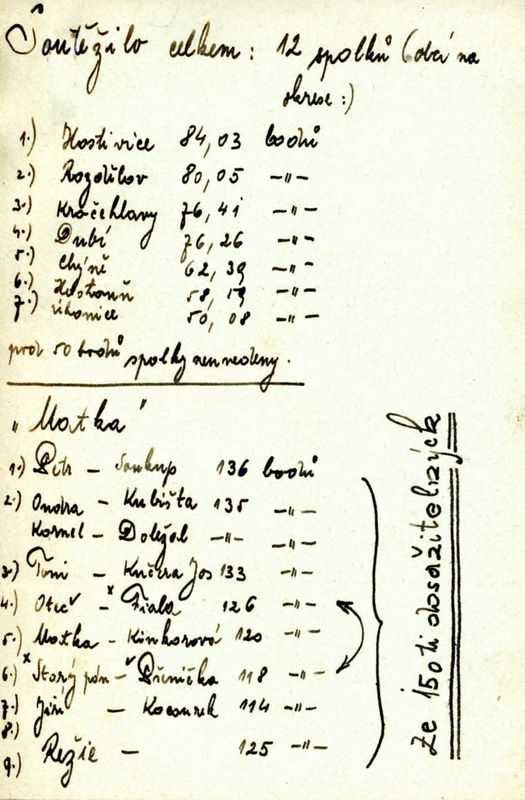 Soutěžilo celkem: 12 spolků (obcí na
okrese:)
1.) Hostivice 84,03 bodů
2.) Rozdělov 80,05 -"-
3.) Kročehlavy 76,41 -"-
4.) Dubí 76,26 -"-
5.) Chýně 62,39 -"-
6.) Hostouň 58,59 -"-
7.) Úhonice 50,08 -"-
pod 50 bodů spolky neuvedeny.
"Matka"
1.) Petr - Soukup 136 bodů
2.) Ondra - Kubišta 135 -"-
Kornel - Doležal -"- -"-
3.) Toni - Kučera Jos 133 -"-
4.) Otec - Fiala 126 -"-
5.) Matka - Kinkorová 120 -"-
6.) Starý pán - Pšenička 118 -"-
7.) Jiří - Kocourek 114 -"-
8.)
9.) Režie - 125 -"-
Ze 150ti dosažitelných